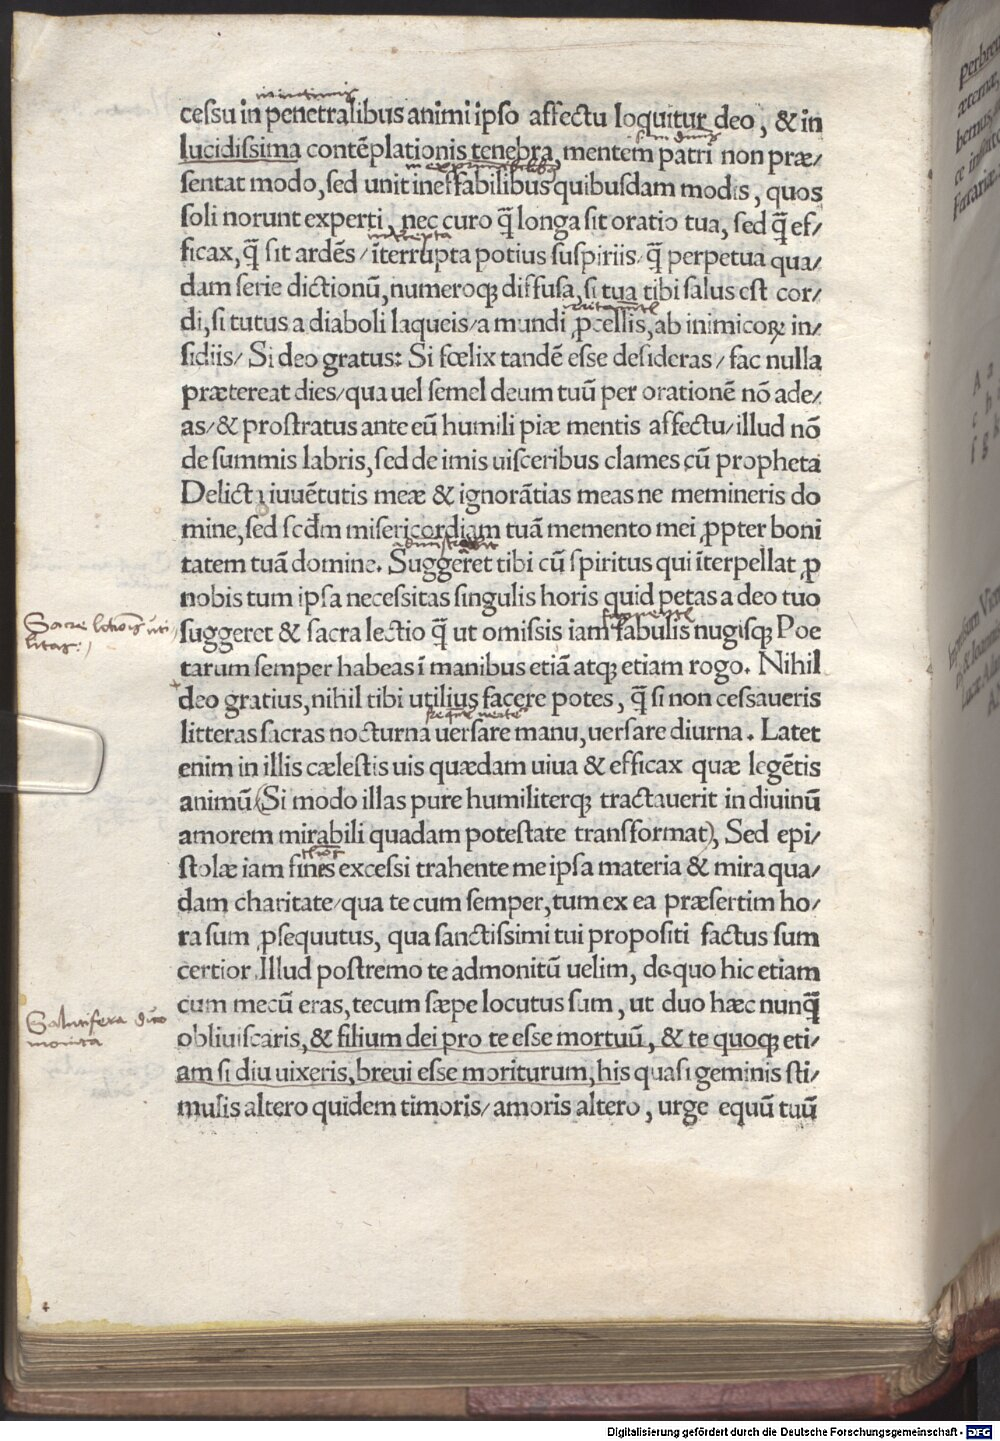 cessu in penetralibus animi ipso affectu loquitur deo, & in
lucidissima contẽplationis tenebra, mentem patri non præ/
sentat modo, sed unit ineffabilibus quibusdam modis, quos
soli norunt experti, nec curo q̃ longa sit oratio tua, sed q̃ ef/
ficax, q̃ sit ardẽs / ĩterrupta potius suspiriis, q̃ perpetua qua/
dam serie dictionũ, numeroqꝫ diffusa, si tua tibi salus est cor/
di, si tutus a diaboli laqueis / a mundi ꝓcellis, ab inimicoꝝ in/
sidiis / Si deo gratus: Si fœlix tandẽ esse desideras / fac nulla
prætereat dies / qua uel semel deum tuũ per orationẽ nõ ade/
as / & prostratus ante eũ humili piæ mentis affectu / illud nõ
de summis labris, sed de imis uisceribus clames cũ propheta
Delicta iuuẽtutis meæ & ignorãtias meas ne memineris do
mine, sed scd̃m misericordiam tuã memento mei ꝓpter boni
tatem tuã domine. Suggeret tibi cũ spiritus qui ĩterpellat ꝓ
nobis tum ipsa necessitas singulis horis quid petas a deo tuo
Sacre lectiõis uti/
litas:
suggeret & sacra lectio q̃ ut omissis iam fabulis nugisqꝫ Poe
tarum semper habeas ĩ manibus etiã atqꝫ etiam rogo. Nihil
deo gratius, nihil tibi utilius facere potes, q̃ si non cessaueris
litteras sacras nocturna uersare manu, uersare diurna. Latet
enim in illis cælestis uis quædam uiua & efficax quæ legẽtis
animũ (Si modo illas pure humiliterqꝫ tractauerit in diuinũ
amorem mirabili quadam potestate transformat), Sed epi/
stolæ iam fines excessi trahente me ipsa materia & mira qua/
dam charitate / qua te cum semper, tum ex ea præsertim ho/
ra sum ꝓsequutus, qua sanctissimi tui propositi factus sum
certior. Illud postremo te admonitũ uelim, de quo hic etiam
Salutifera
monita
cum mecũ eras, tecum sæpe locutus sum, ut duo hæc nunq̃
obliuiscaris, & filium dei pro te esse mortuũ, & te quoqꝫ eti/
am si diu uixeris, breui esse moriturum, his quasi geminis sti/
mulis altero quidem timoris / amoris altero, urge equũ tuũ
Digitalisierung gefördert durch die Deutsche Forschungsgemeinschaft - DFG